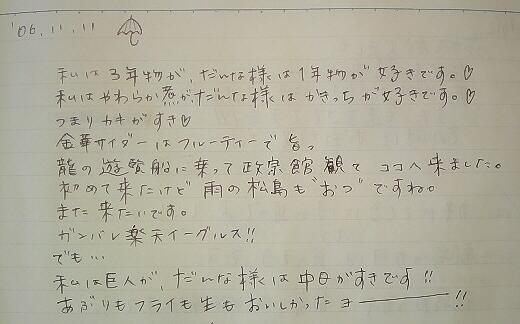 '06.11.11
私は3年物が、だんな様は1年物が好きです。♡
私はやわらか煮が、だんな様はかきっちが好きです。♡
つまりカキがすき♡
金華サイダーはフルーティーで旨っ
龍の遊覧船に乗って政宗館観て ココへ来ました。
初めて来たけど雨の松島も"おつ"ですね。
また来たいです。
ガンバレ楽天イーグルス!!
でも…
私は巨人が、だんな様は中日がすきです!!
あぶりもフライも生もおいしかったョ――!!